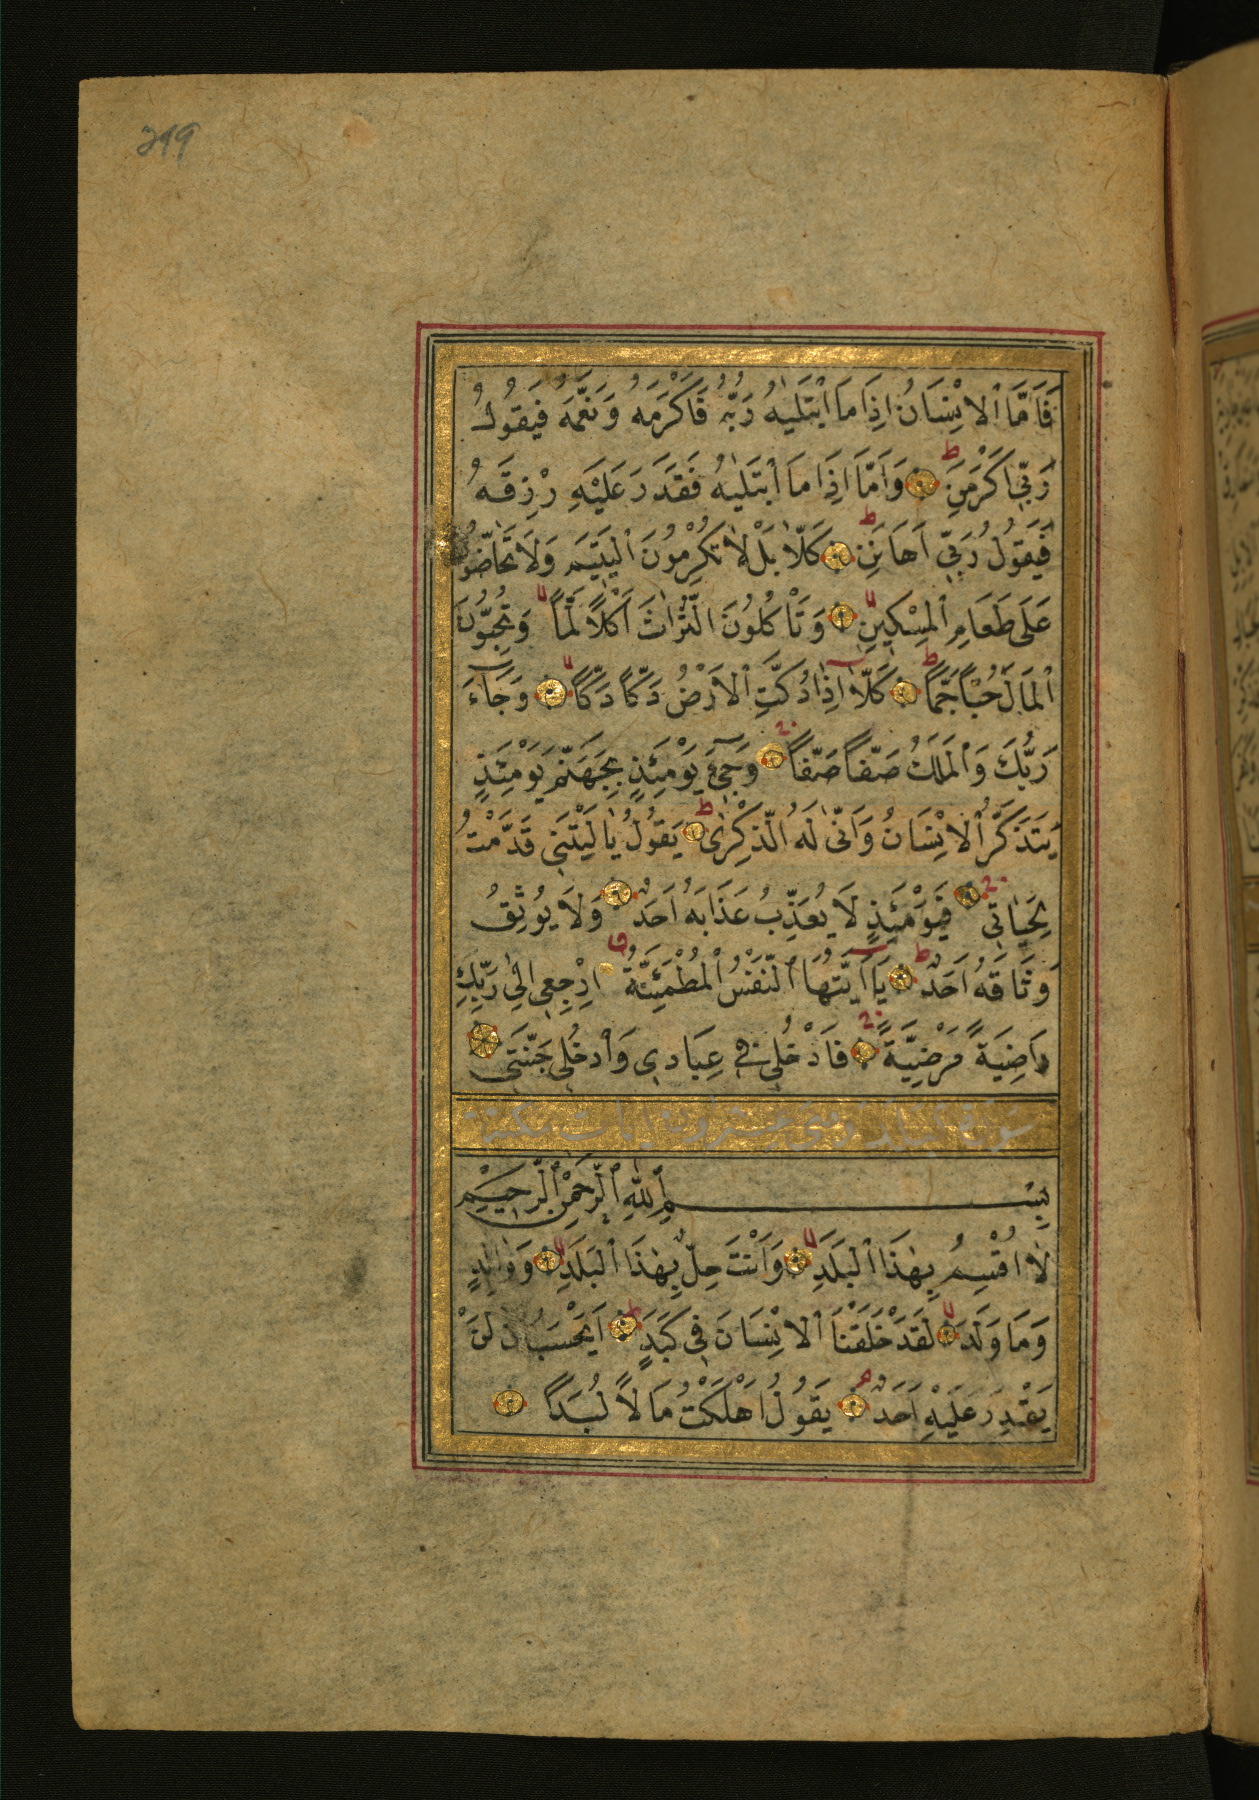 219
فَاَمَّا ٱلْاِنْسَانُ اِذَا مَا ٱبْتَلٰيهُ رَبُّهُ فَاَكْرَمَهُ وَنَعَّمَهُ فَيَقُولُ
رَبِّى اَكْرَمَنِ ط وَاَمَّا اِذَا مَا ٱبْتَلٰيهُ فَقَدَرَ عَلَيْهِ رِزْقَهُ
فَيَقُولُ رَبِّى اَهَانَنِ ط كَلَّا بَلْ لَا تُكْرِمُونَ ٱلْيَتِيمَ وَلَا تَحَاضُّونَ
عَلَى طَعَامِ ٱلْمِسْكِينِ لا وَتَأْكُلُونَ التُّرَاثَ اَكْلًا لَمًّا لا وَتُحِبُّونَ
ٱلْمَالَ حُبًّا جَمًّا ط كَلَّا اِذَا دُكَّتِ ٱلْاَرْضُ دَكًّا دَكًّا لا وَجَآءَ
رَبُّكَ وَٱلْمَلَكُ صَفًّا صَفًّا ج وَجِىٓءَ يَوْمَئِذٍ بِجَهَنَّمَ يَوْمَئِذٍ
يَتَذَكَّرُ ٱلْاِنْسَانُ وَاَنّٰى لَهُ الذِّكْرٰى ط يَقُولُ يَا لَيْتَنِى قَدَّمْتُ
لِحَيَاتِى ج فَيَوْمَئِذٍ لَا يُعَذِّبُ عَذَابَهُ اَحَدٌ وَلَا يُوثِقُ
وَثَاقَهُ اَحَدٌ ط يَآ اَيَّتُهَا ٱلنَّفْسُ ٱلْمُطْمَئِنَّةُ ق اِرْجِعِى اِلٰى رَبِّكِ
رَاضِيَةً مَرْضِيَّةً ج فَادْخُلِى فِى عِبَادِى وَٱدْخُلِى جَنَّتِى
سورة البلد وهى عشرون ايات مكية
بِسْمِ ٱللّٰهِ ٱلرَّحْمٰنِ ٱلرَّحِيمِ
لَا اُقْسِمُ بِهٰذَا ٱلْبَلَدِ لا وَاَنْتَ حِلٌّ بِهٰذَا ٱلْبَلَدِ لا وَوَالِدٍ
وَمَا وَلَدَ لا لَقَدْ خَلَقْنَا ٱلْاِنْسَانَ فِى كَبَدٍ ط اَيَحْسَبُ اَنْ لَنْ
يَقْدِرَ عَلَيْهِ اَحَدٌ م يَقُولُ اَهْلَكْتُ مَالًا لُبَدًا